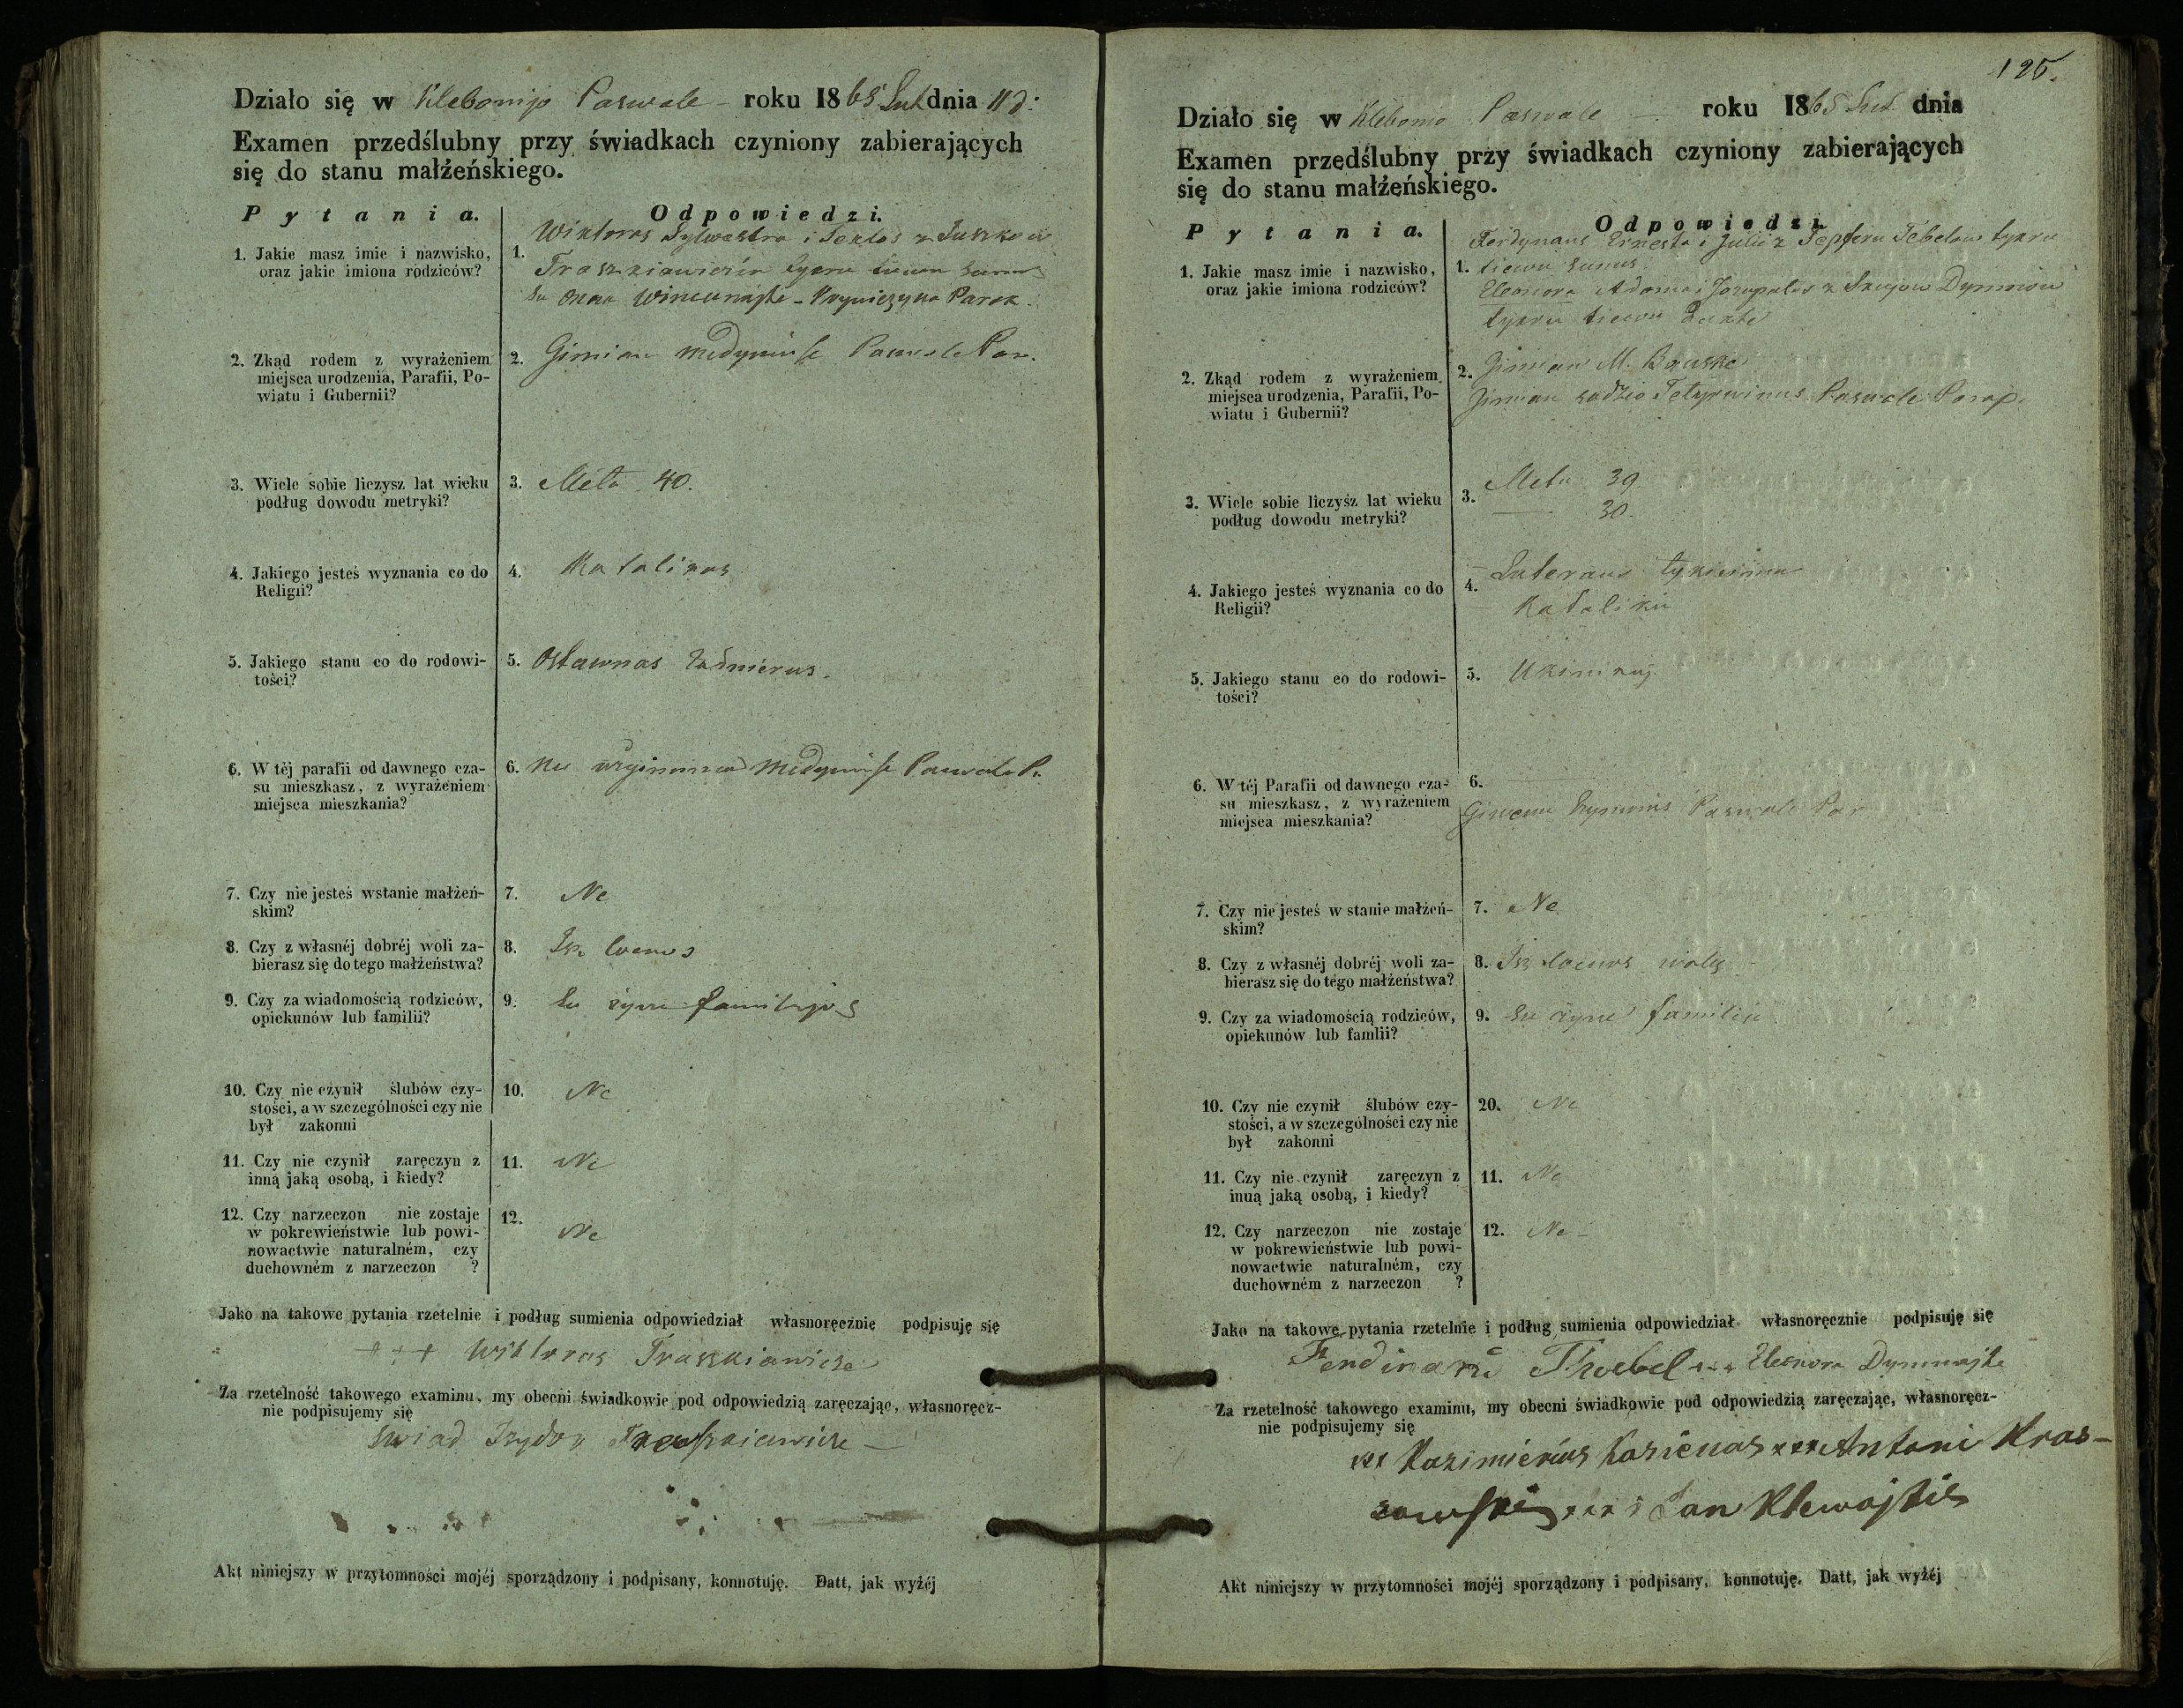 Działo się w Klebonijo Paswale – roku 1865 Lut dnia 11 d:
Examen przedślubny przy świadkach czyniony zabierających
się do stanu małżeńskiego.
Pytania. Odpowiedzi.
1. Jakie masz imie i nazwisko,
oraz jakie imiona rodziców?
1. Wiktoras Sylwestra i Teklos z Suszków
Traszkiawiczu tykru tiewu sunus
su Ona Wincunajte – Parak.
2. Zkąd rodem z wyrażeniem
miejsca urodzenia, Parafii, Po-
wiatu i Gubernii?
2. Gimian Paswale Par.
3. Wiele sobie liczysz lat wieku
podług dowodu metryki?
3. Metu 40.
4. Jakiego jesteś wyznania co do
Religii?
4. Katalikas
5. Jakiego stanu co do rodowi-
tości?
5. Ostawnas Żadnierus.
6. W téj parafii od dawnego cza-
su mieszkasz, z wyrażeniem
miejsca mieszkania?
6. Nu Paswale P.
7. Czy nie jesteś wstanie małżeń-
skim?
7. Ne
8. Czy z własnéj dobréj woli za-
bierasz się do tego małżeństwa?
8. Isz locnos
9. Czy za wiadomością rodziców,
opiekunów lub familii?
9. Su żyne familijos
10. Czy nie czynił ślubów czy-
stości, a w szczególności czy nie
był zakonni
10. Ne
11. Czy nie czynił zaręczyn z
inną jaką osobą, i kiedy?
11. Ne
12. Czy narzeczon nie zostaje
w pokrewieństwie lub powi-
nowactwie naturalném, czy
duchowném z narzeczon ?
12. Ne
Jako na takowe pytania rzetelnie i podług sumienia odpowiedział własnoręcznie podpisuję się
+++ Wiktoras Traszkiawicze
Za rzetelność takowego examinu, my obecni świadkowie pod odpowiedzią zaręczając, własnoręcz-
nie podpisujemy się
Swiad Izydor Traszkiewicze –
Akt niniejszy w przytomności mojéj sporządzony i podpisany, konnotuję. Datt, jak wyżéj
125.
Działo się w Klebono Paswale – roku 1865 Lut dnia
Examen przedślubny przy świadkach czyniony zabierających
się do stanu małżeńskiego.
Pytania. Odpowiedzi.
1. Jakie masz imie i nazwisko,
oraz jakie imiona rodziców?
Ferdynans Ernesta i Julii z Tepferu Tebelow tykru
1. tiewu sunus.
Eleonora Adoma i Jozupatos z Dymnow
tykru tiewu Dukte
2. Zkąd rodem z wyrażeniem
miejsca urodzenia, Parafii, Po-
wiatu i Gubernii?
2. Gimian M. Bauske
Gimian sodzio Tetyrwinus Paswale Parap.
3. Wiele sobie liczysz lat wieku
podług dowodu metryki?
3. Metu 39
— 30.
4. Jakiego jesteś wyznania co do
Religii?
4. Luteraus tykieimo
Kataliku
5. Jakiego stanu co do rodowi-
tości?
5. Ukinikaj
6. W téj Parafii od dawnego cza-
su mieszkasz, z wyrażeniem
miejsca mieszkania?
6.
Giwenu Paswale Par
7. Czy nie jesteś w stanie małżeń-
skim?
7. Ne
8. Czy z własnéj dobréj woli za-
bierasz się do tégo małżeństwa?
8. Isz locnos walos
9. Czy za wiadomością rodziców,
opiekunów lub famlii?
9. Su żyne familiu
10. Czy nie czynił ślubów czy-
stości, a w szczególności czy nie
był zakonni
20. Ne
11. Czy nie czynił zaręczyn z
inuą jaką osobą, i kiedy?
11. Ne
12. Czy narzeczon nie zostaje
w pokrewieństwie lub powi-
nowactwie naturalném, czy
duchowném z narzeczon ?
12. Ne –
Jako na takowe pytania rzetelnie i podług sumienia odpowiedział własnoręcznie podpisuję się
Ferdinand Thoebel +++ Eleonora Dymnajte
Za rzetelność takowego examinu, my obecni świadkowie pod odpowiedzią zaręczając, własnoręcz-
nie podpisujemy się
Kazimierius Kasienas +++ Antoni Kras-
sowski +++ i Jan Klewajtis
Akt niniejszy w przytomności mojéj sporządzony i podpisany, konnotuję. Datt, jak wyżéj